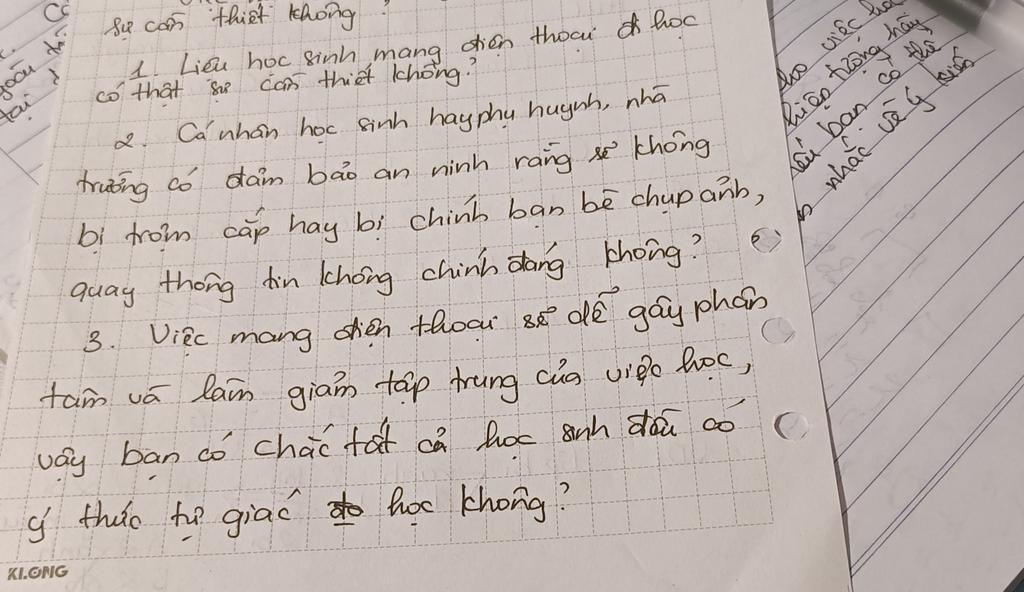 sự cần thiết không?
1. Liệu học sinh mang điện thoại đi học
có thật sự cần thiết không?
2. Cá nhân học sinh hay phụ huynh, nhà
trường có đảm bảo an ninh rằng sẽ không
bị trộm cắp hay bị chính bạn bè chụp ảnh,
quay thông tin không chính đáng không?
3. Việc mang điện thoại sẽ dễ gây phân
tâm và làm giảm tập trung của việc học,
vậy bạn có chắc tất cả học sinh đều có
ý thức tự giác học không?
KLONG
việc học
hiện tượng này
bạn có thể
nhắc về ý kiến